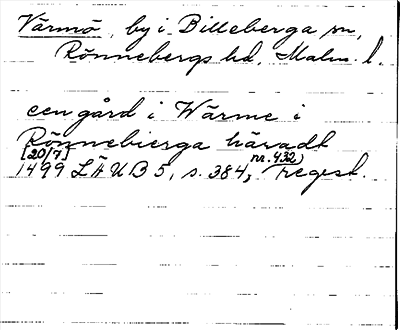 Värmö, by i Billeberga sn,
Rönnebergs hd, Malm. l.
een gård i Wärme i
Rönnebierga häradt
[20/7] nr. 432)
1499 LÄUB 5, s. 384, regest.